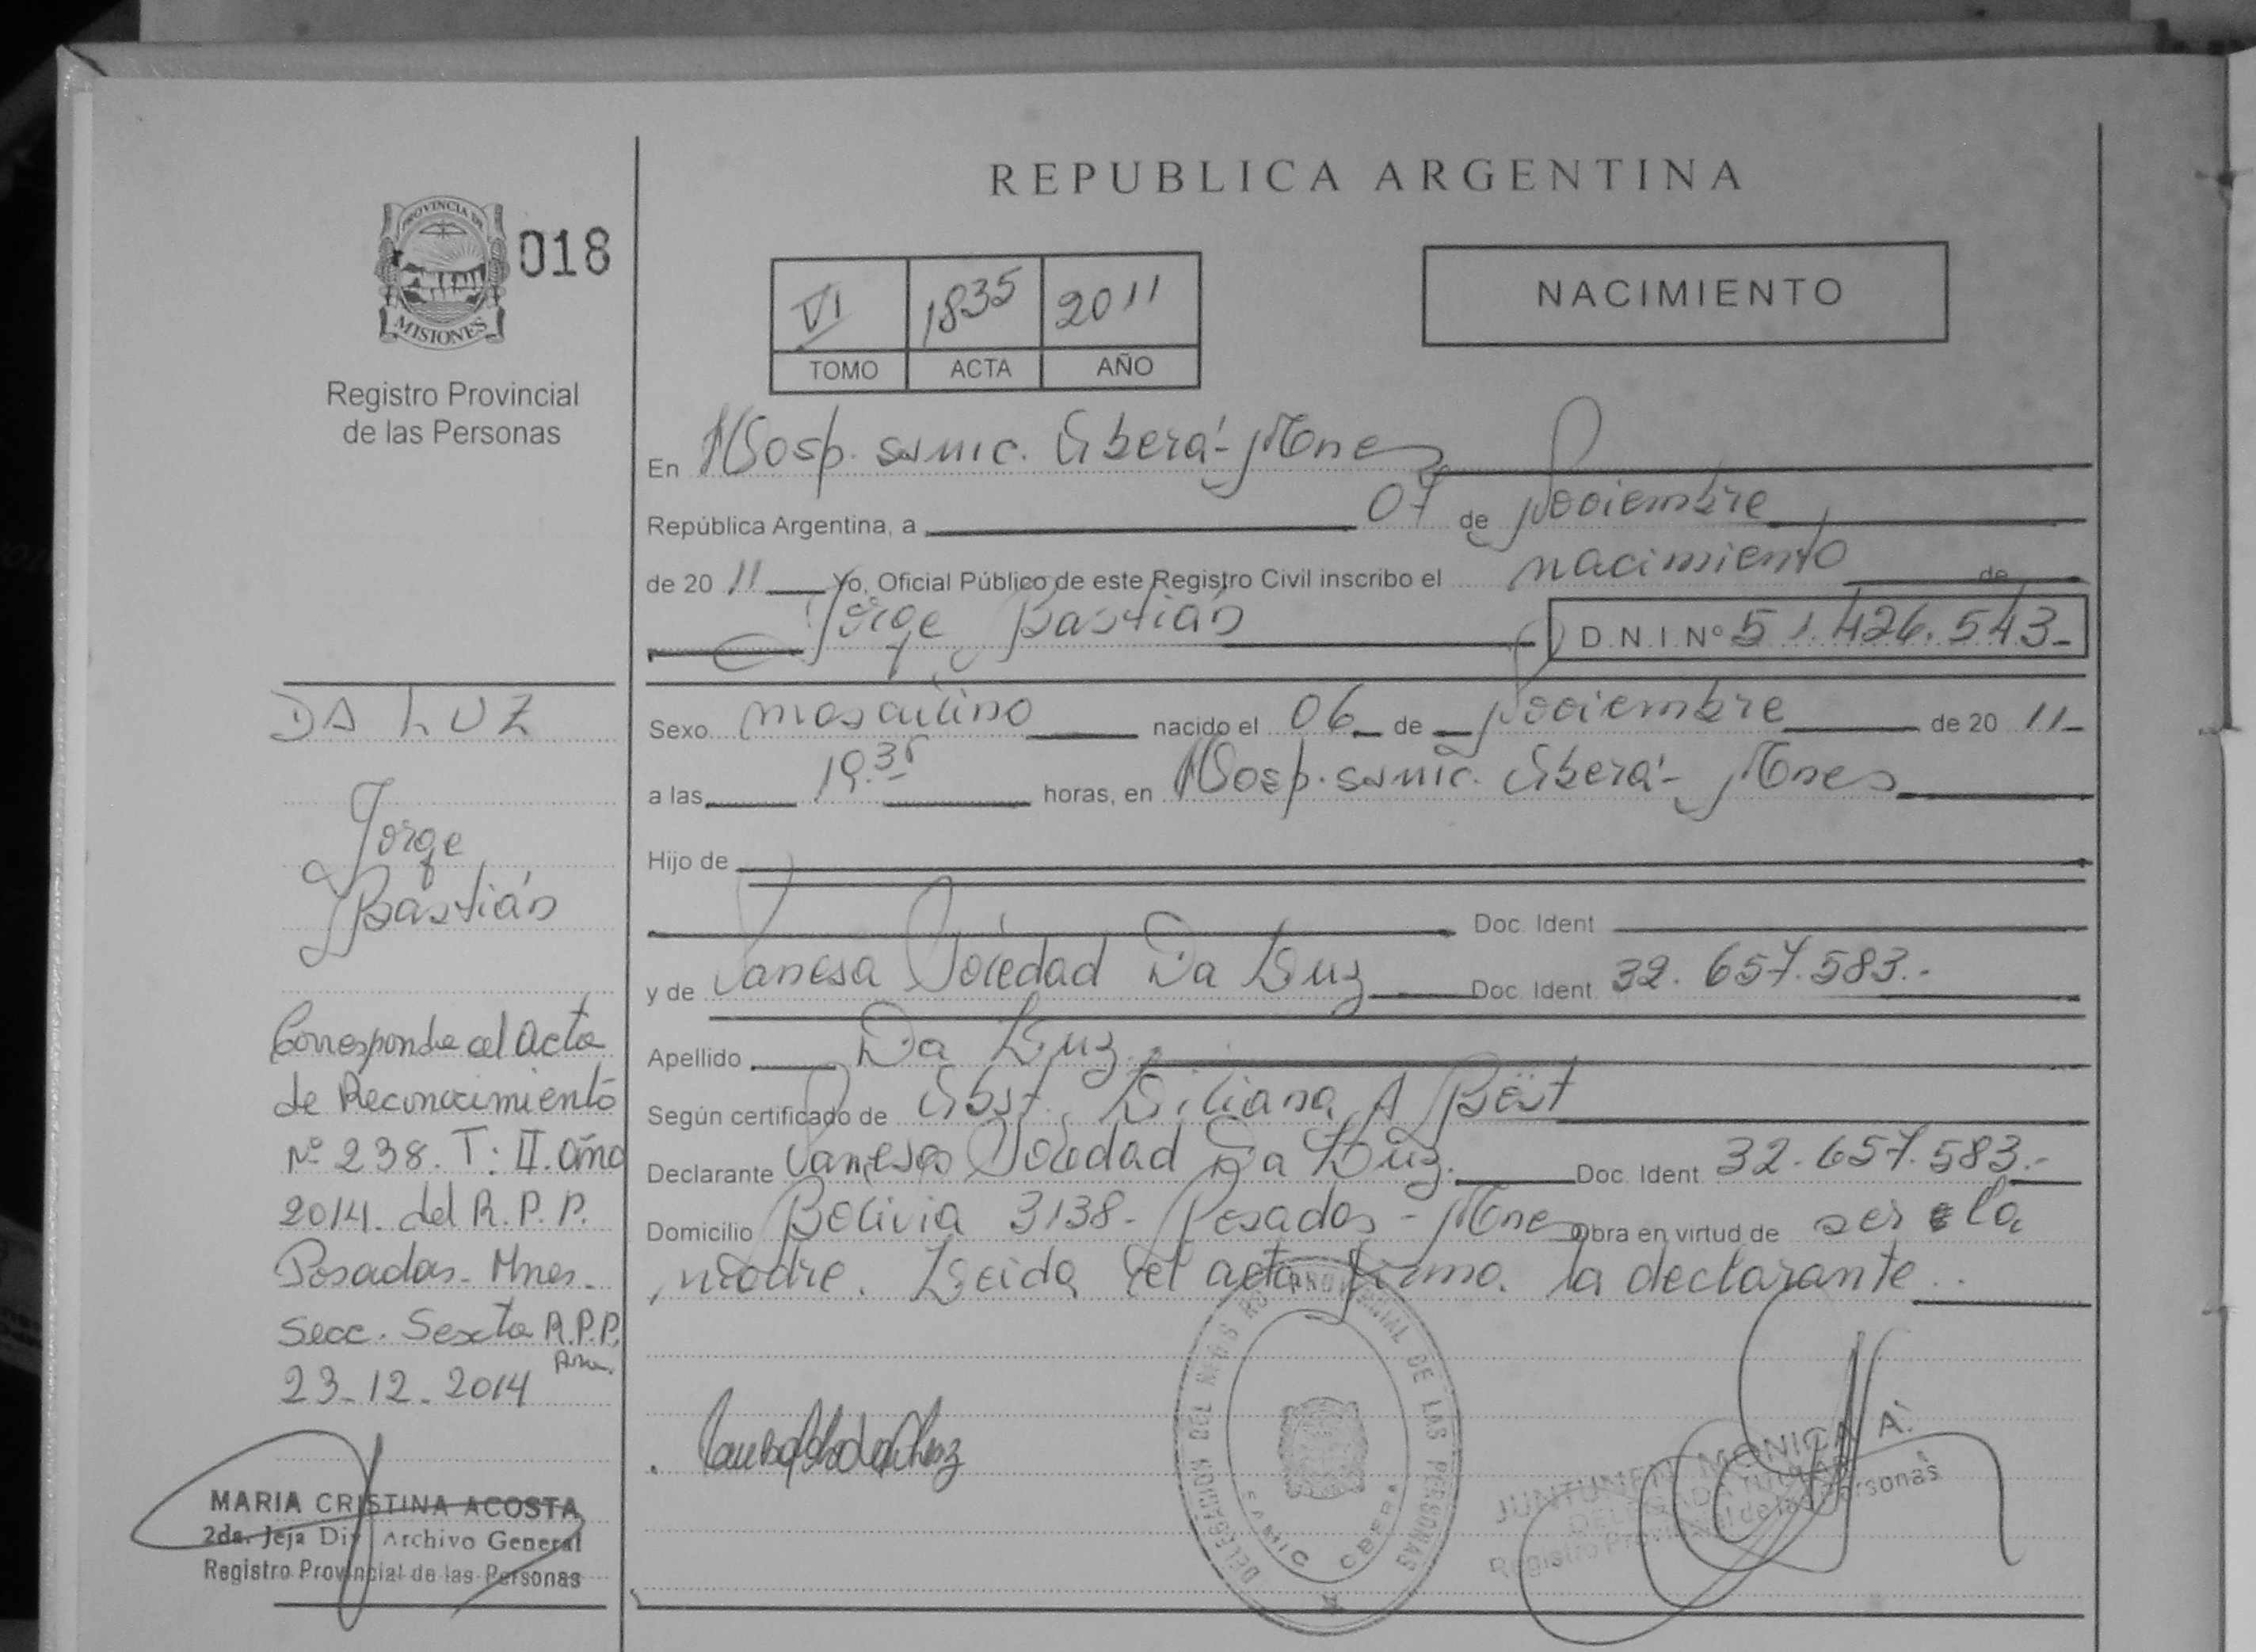 PROVINCIA DE
MISIONES
018
Registro Provincial
de las Personas
DA LUZ
Jorge
Bastián
Corresponde al acta
de Reconocimiento
Nº 238. T: II. año
2014. del R.P.P.
Posadas - Mnes.
Secc. Sexta R.P.P.
23-12-2014
MARIA CRISTINA ACOSTA
2da. Jefa Div Archivo General
Registro Provincial de las Personas
REPUBLICA ARGENTINA
VI 1835 2011
TOMO ACTA AÑO
NACIMIENTO
En Hosp. samic. Oberá - Mnes
República Argentina, a 07 de Noviembre
de 20 11 Yo, Oficial Público de este Registro Civil inscribo el nacimiento de
Jorge Bastián D.N.I.Nº 51.426.543-
Sexo masculino nacido el 06 de Noviembre de 20 11-
a las 19.35 horas, en Hosp. samic. Oberá - Mnes
Hijo de
Doc. Ident
y de Vanesa Soledad Da Luz Doc. Ident. 32.657.583.-
Apellido Da Luz.
Según certificado de Obst. Liliana A
Declarante Vanesa Soledad Da Luz. Doc. Ident. 32.657.583.-
Domicilio Bolivia 3138- Posadas - Mnes Obra en virtud de ser la
madre. Leida el acta firma la declarante..
REGISTRO PROVINCIAL DE LAS PERSONAS
SAMIC OBERA
MONICA A.
DELEGADA TITULAR
Registro Provincial de las Personas